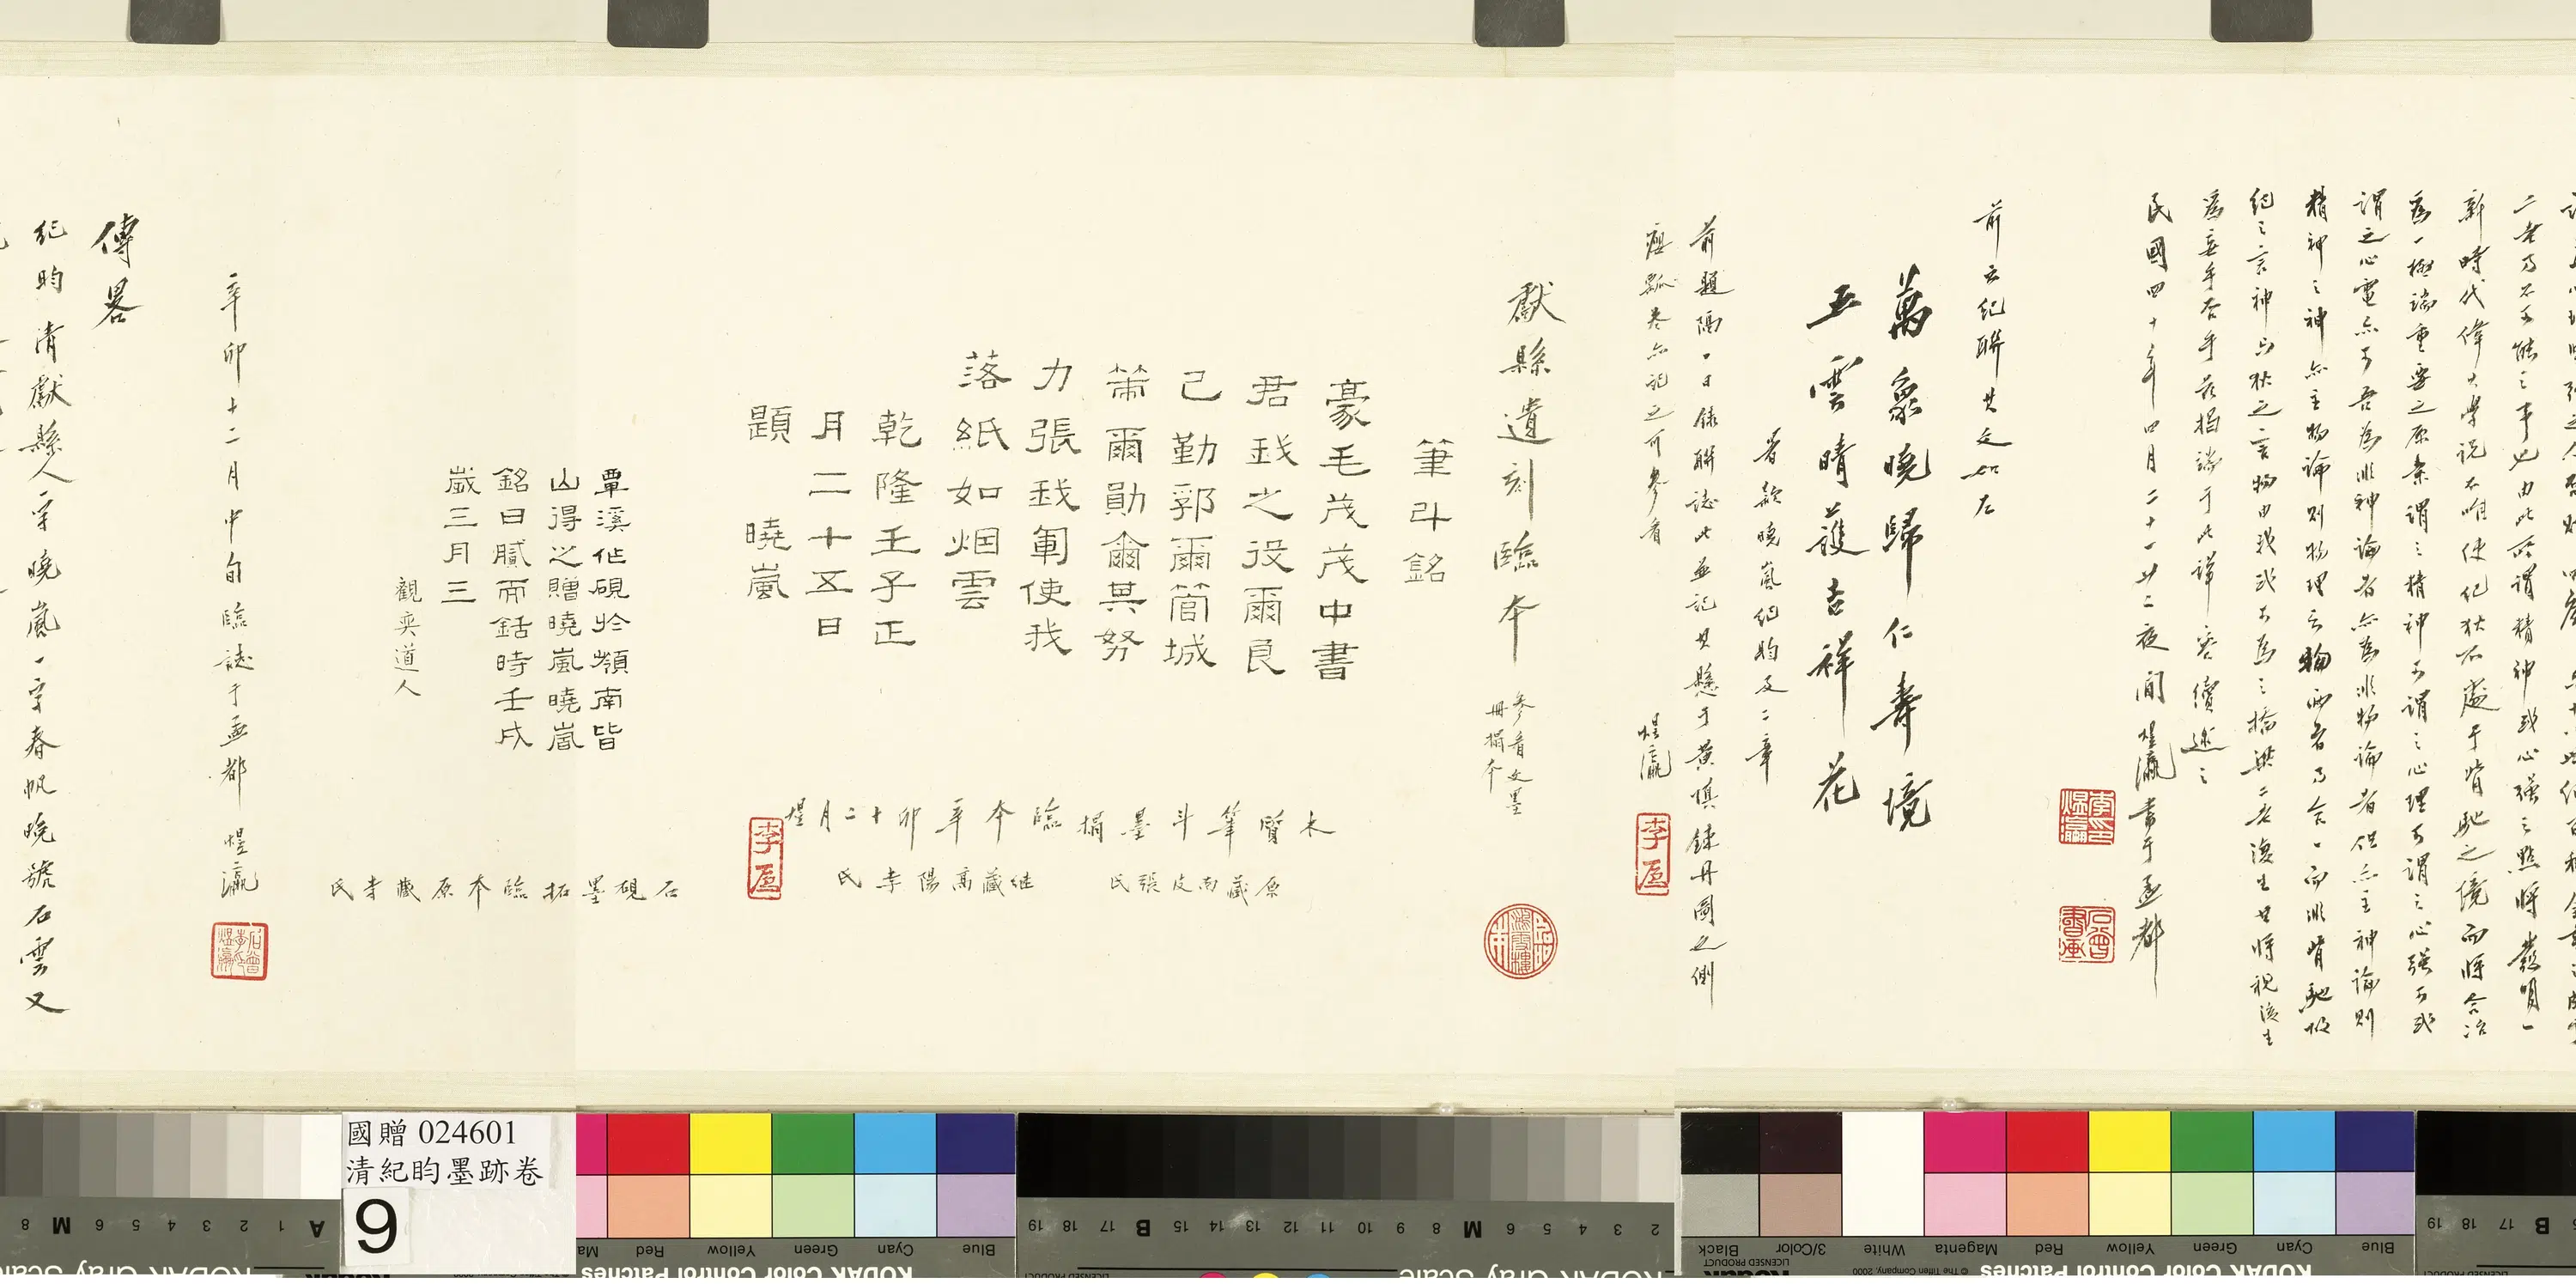 二老乃不可能之事也由此所謂精神或心強之點將發明一
新時代偉大學說不唯使紀狄不處于背馳之境而將合冶
為一極端重要之原素謂之精神可謂之心理可謂之心強可或
謂之心電亦可吾為非神論者亦為非物論者但亦主神論則
精神之神亦主物論則物理之物兩者乃合一而非背馳
紀之言神與狄之言物由我或可為之橋梁二老復生其將視後生
為妄乎否乎茲揭端于此詳容續述之
民國四十年四月二十一廿二夜間煜瀛書于孟都
前云紀聯其文如左
萬象曉歸仁壽境
五雲晴護吉祥花
署款曉嵐紀昀及二章
前題隔一日錄聯誌此並記其懸于黃慎鍊丹圖之側
癭瓢卷亦記之可參看
煜瀛
李石
獻縣遺刻臨本
參看文墨
冊搨本
筆斗銘
豪毛茂茂中書
君錢之役爾良
己勤郭爾筩城
策爾勛爾其努
力張錢軍使我
落紙如烟雲
乾隆壬子正
月二十五日
曉嵐
題
木質筆斗墨搨臨本辛卯十二月煜
原藏南皮張氏
繼藏高陽李氏
李石
覃溪作硯於嶺南皆
山得之贈曉嵐曉嵐
銘曰膩而銛時壬戌
歲三月三
觀奕道人
石硯墨拓臨本原藏李氏
辛卯十二月中旬臨誌于孟都
煜瀛
傳畧
紀昀清獻縣人字曉嵐一字春帆晚號石雲又
國贈 024601
清紀昀墨跡卷
9
8 M 6 5 4 3 2 1 A
Red
Yellow
Green
Cyan
Blue
19 18 17 B 15 14 13 12 11 10 9 8 M 6 5 4 3 2
KODAK Color Control Patches
Black
3/Color
White
Magenta
Red
Yellow
Green
Cyan
Blue
19 18 17 B
LICENSED PRODUCT
© The Tiffen Company, 2000
KODAK Color Control Patches
KODAK Gray Scale